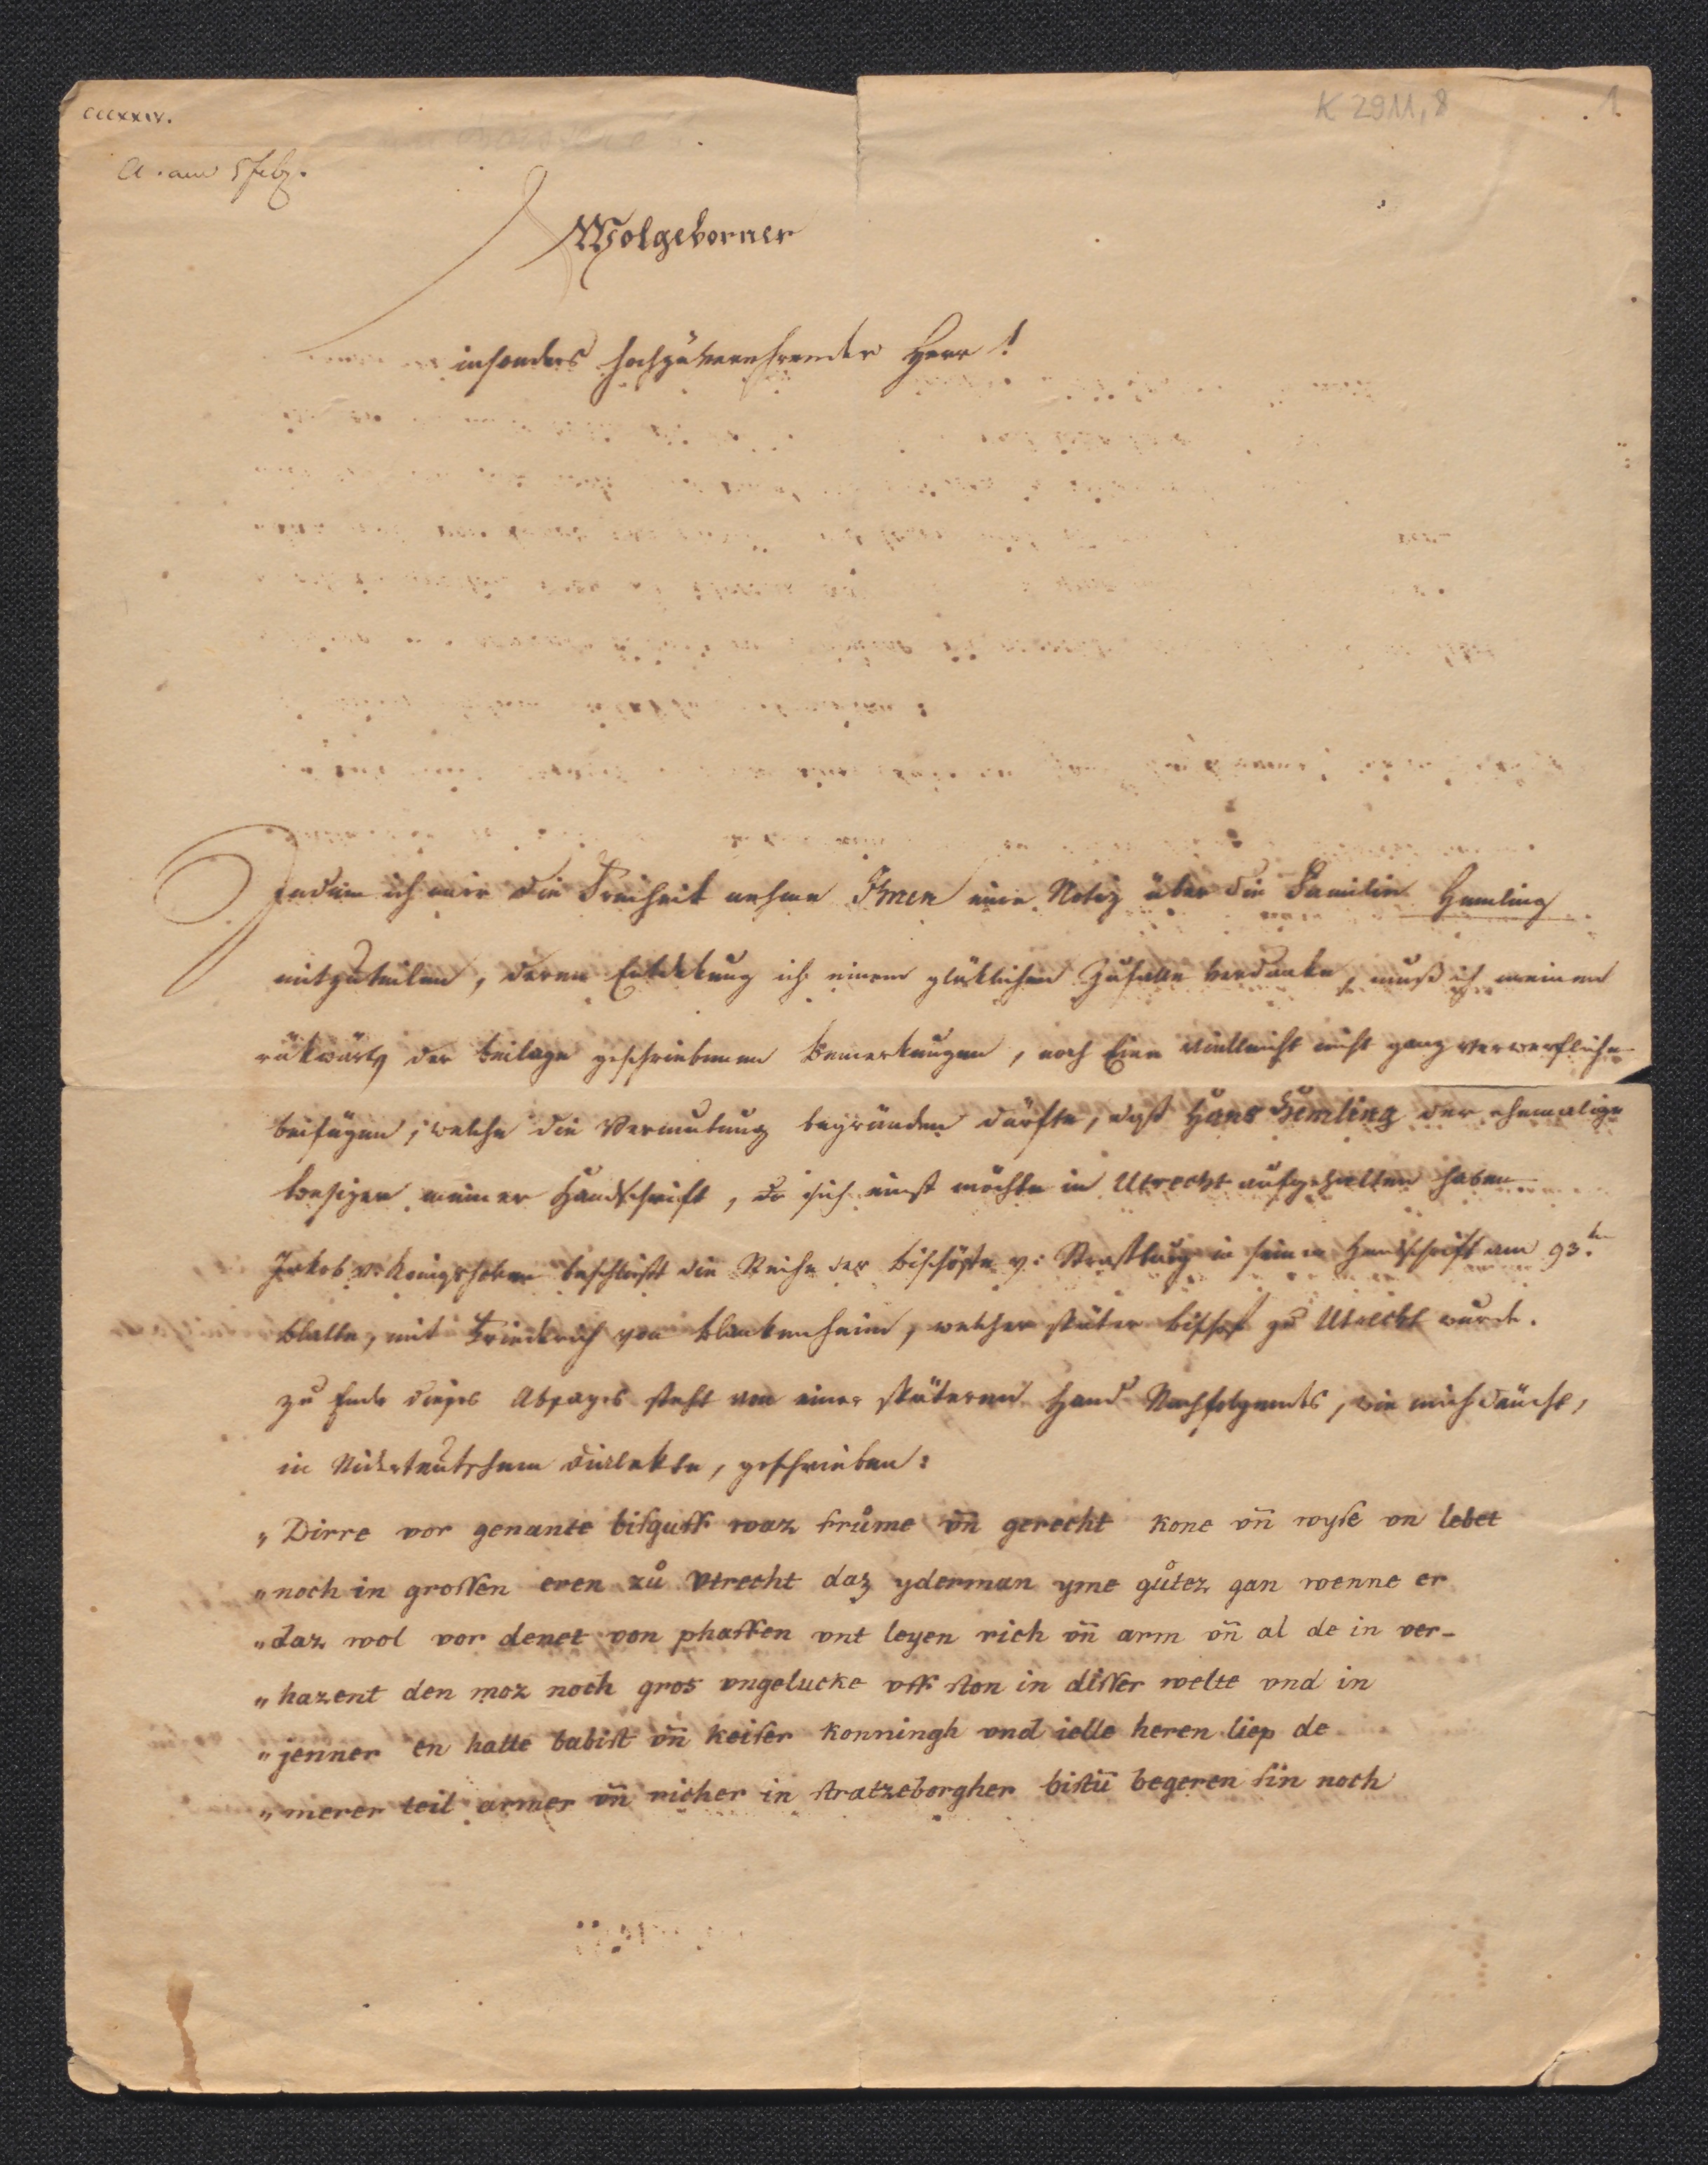 CCCXXIV.
K 2911,8
1
A. am 5 Feb.
Wolgeborner
insonders hochzuverehrender Herr!
Indem ich mir die Freiheit nehme Ihnen eine Notiz über die Familie Hemling
mitzuteilen, deren Entdekkung ich einem glüklichen Zufalle verdanke, muß ich meinen
rükwärts der Beilage geschriebenen Bemerkungen, noch Eine vielleicht nicht ganz verwerfliche
beifügen, welche die Vermutung begründen dürfte, daß Hans Hemling der ehemalige
Besizer meiner Handschrift, sich einst möchte in Utrecht aufgehalten haben
Jakob v. Königshoven beschließt die Reihe der Bischöffe v: Straßburg in seiner Handschrift am 93.ten
Blatte, mit Friederich von Blankenheim, welcher später Bischof zu Utrecht wurde.
zu Ende dieses Absazes steht von einer späteren Hand Nachfolgendes, wie mich däucht,
in Niderteutschem Dialekte, geschrieben:
„Dirre vor genante bisguff waz frůme vñ gerecht kone vñ wyse vn lebet
„noch in grossen eren zů Vtrecht daz yderman yme gůtez gan wenne er
„daz wol vor denet von phaffen vnt leyen rich vñ arm vñ al de in ver-
„hazent den moz noch gros vngelucke vff ston in disser welte vnd in
„jenner en hatte babist vñ keiser konningh vnd ielle heren liep de
„merer teil armer vñ richer in stratzeborgher bistū begeren sin noch